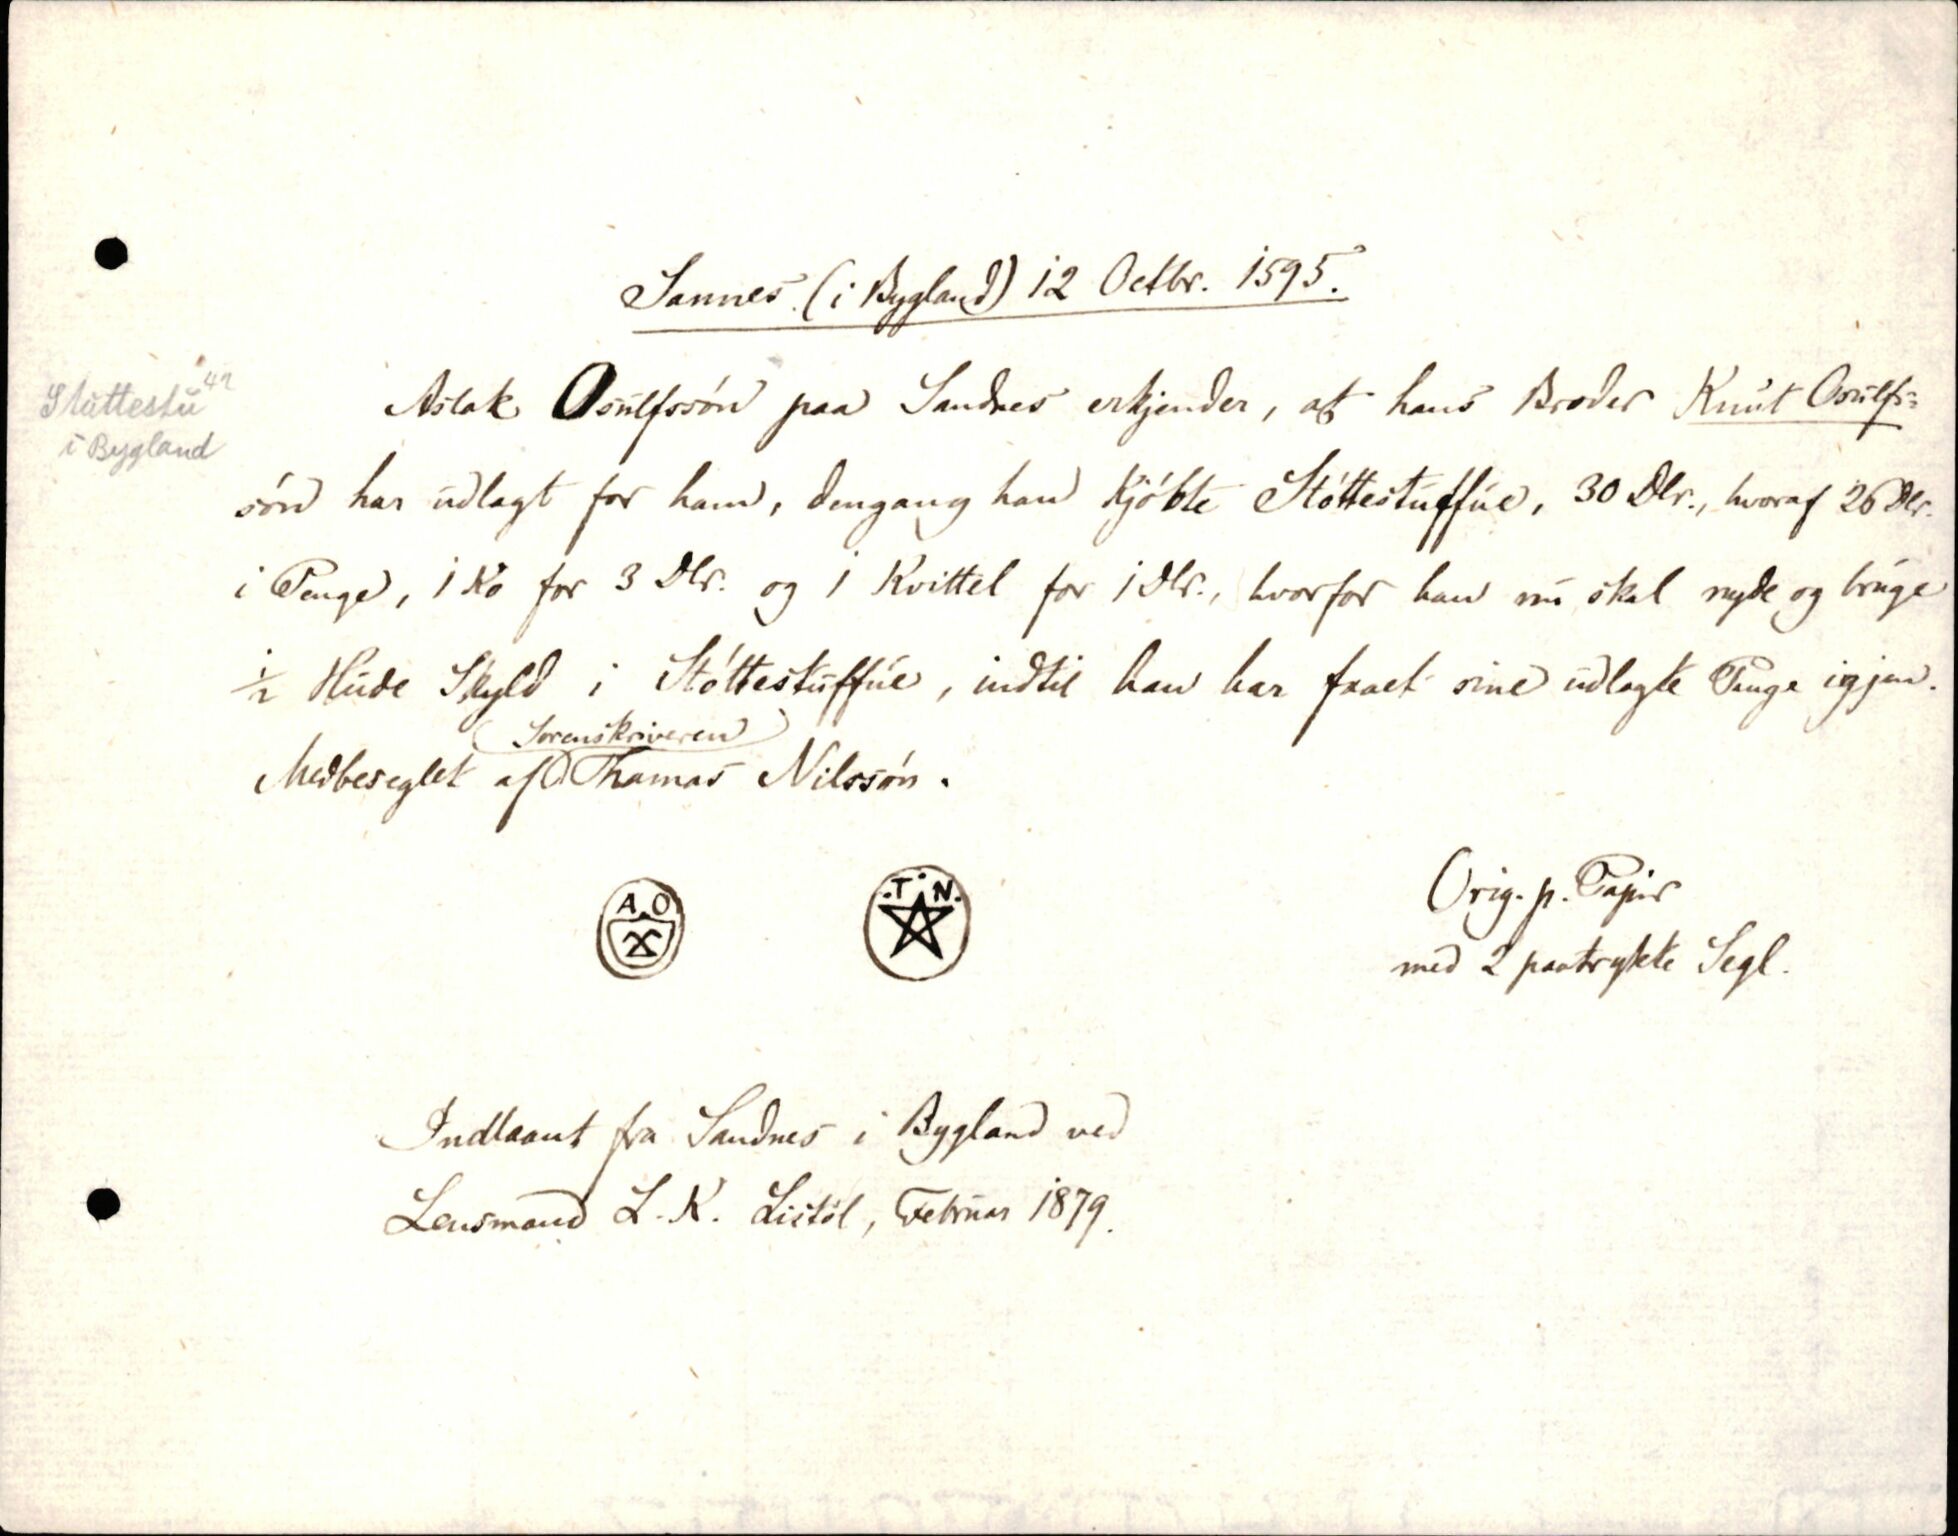 Sannes. (i Bygland) 12 Octbr. 1595.
Stuttestu 42
i Bygland
Aslak Osulfssön paa Sandnes erkjender, at hans Broder Knut Osulfs=
sön har udlagt for ham, dengang han kjöbte Stöttestuffue, 30 Dlr., hvoraf 26 Dlr.
i Penge, 1 Ko for 3 Dlr. og 1 Kvittel for 1 Dlr., hvorfor han nu skal nyde og bruge
1/2 Hude Skyld i Stöttestuffue, indtil han har faaet sine udlagte Penge igjen.
(Sorenskriveren)
Medbeseglet af Thomas Nilssön.
A. O
.T. N.
Orig. p. Papir
med 2 paatrykte Segl.
Indlaant fra Sandnes i Bygland ved
Lensmand L. K. Listöl, Februar 1879.